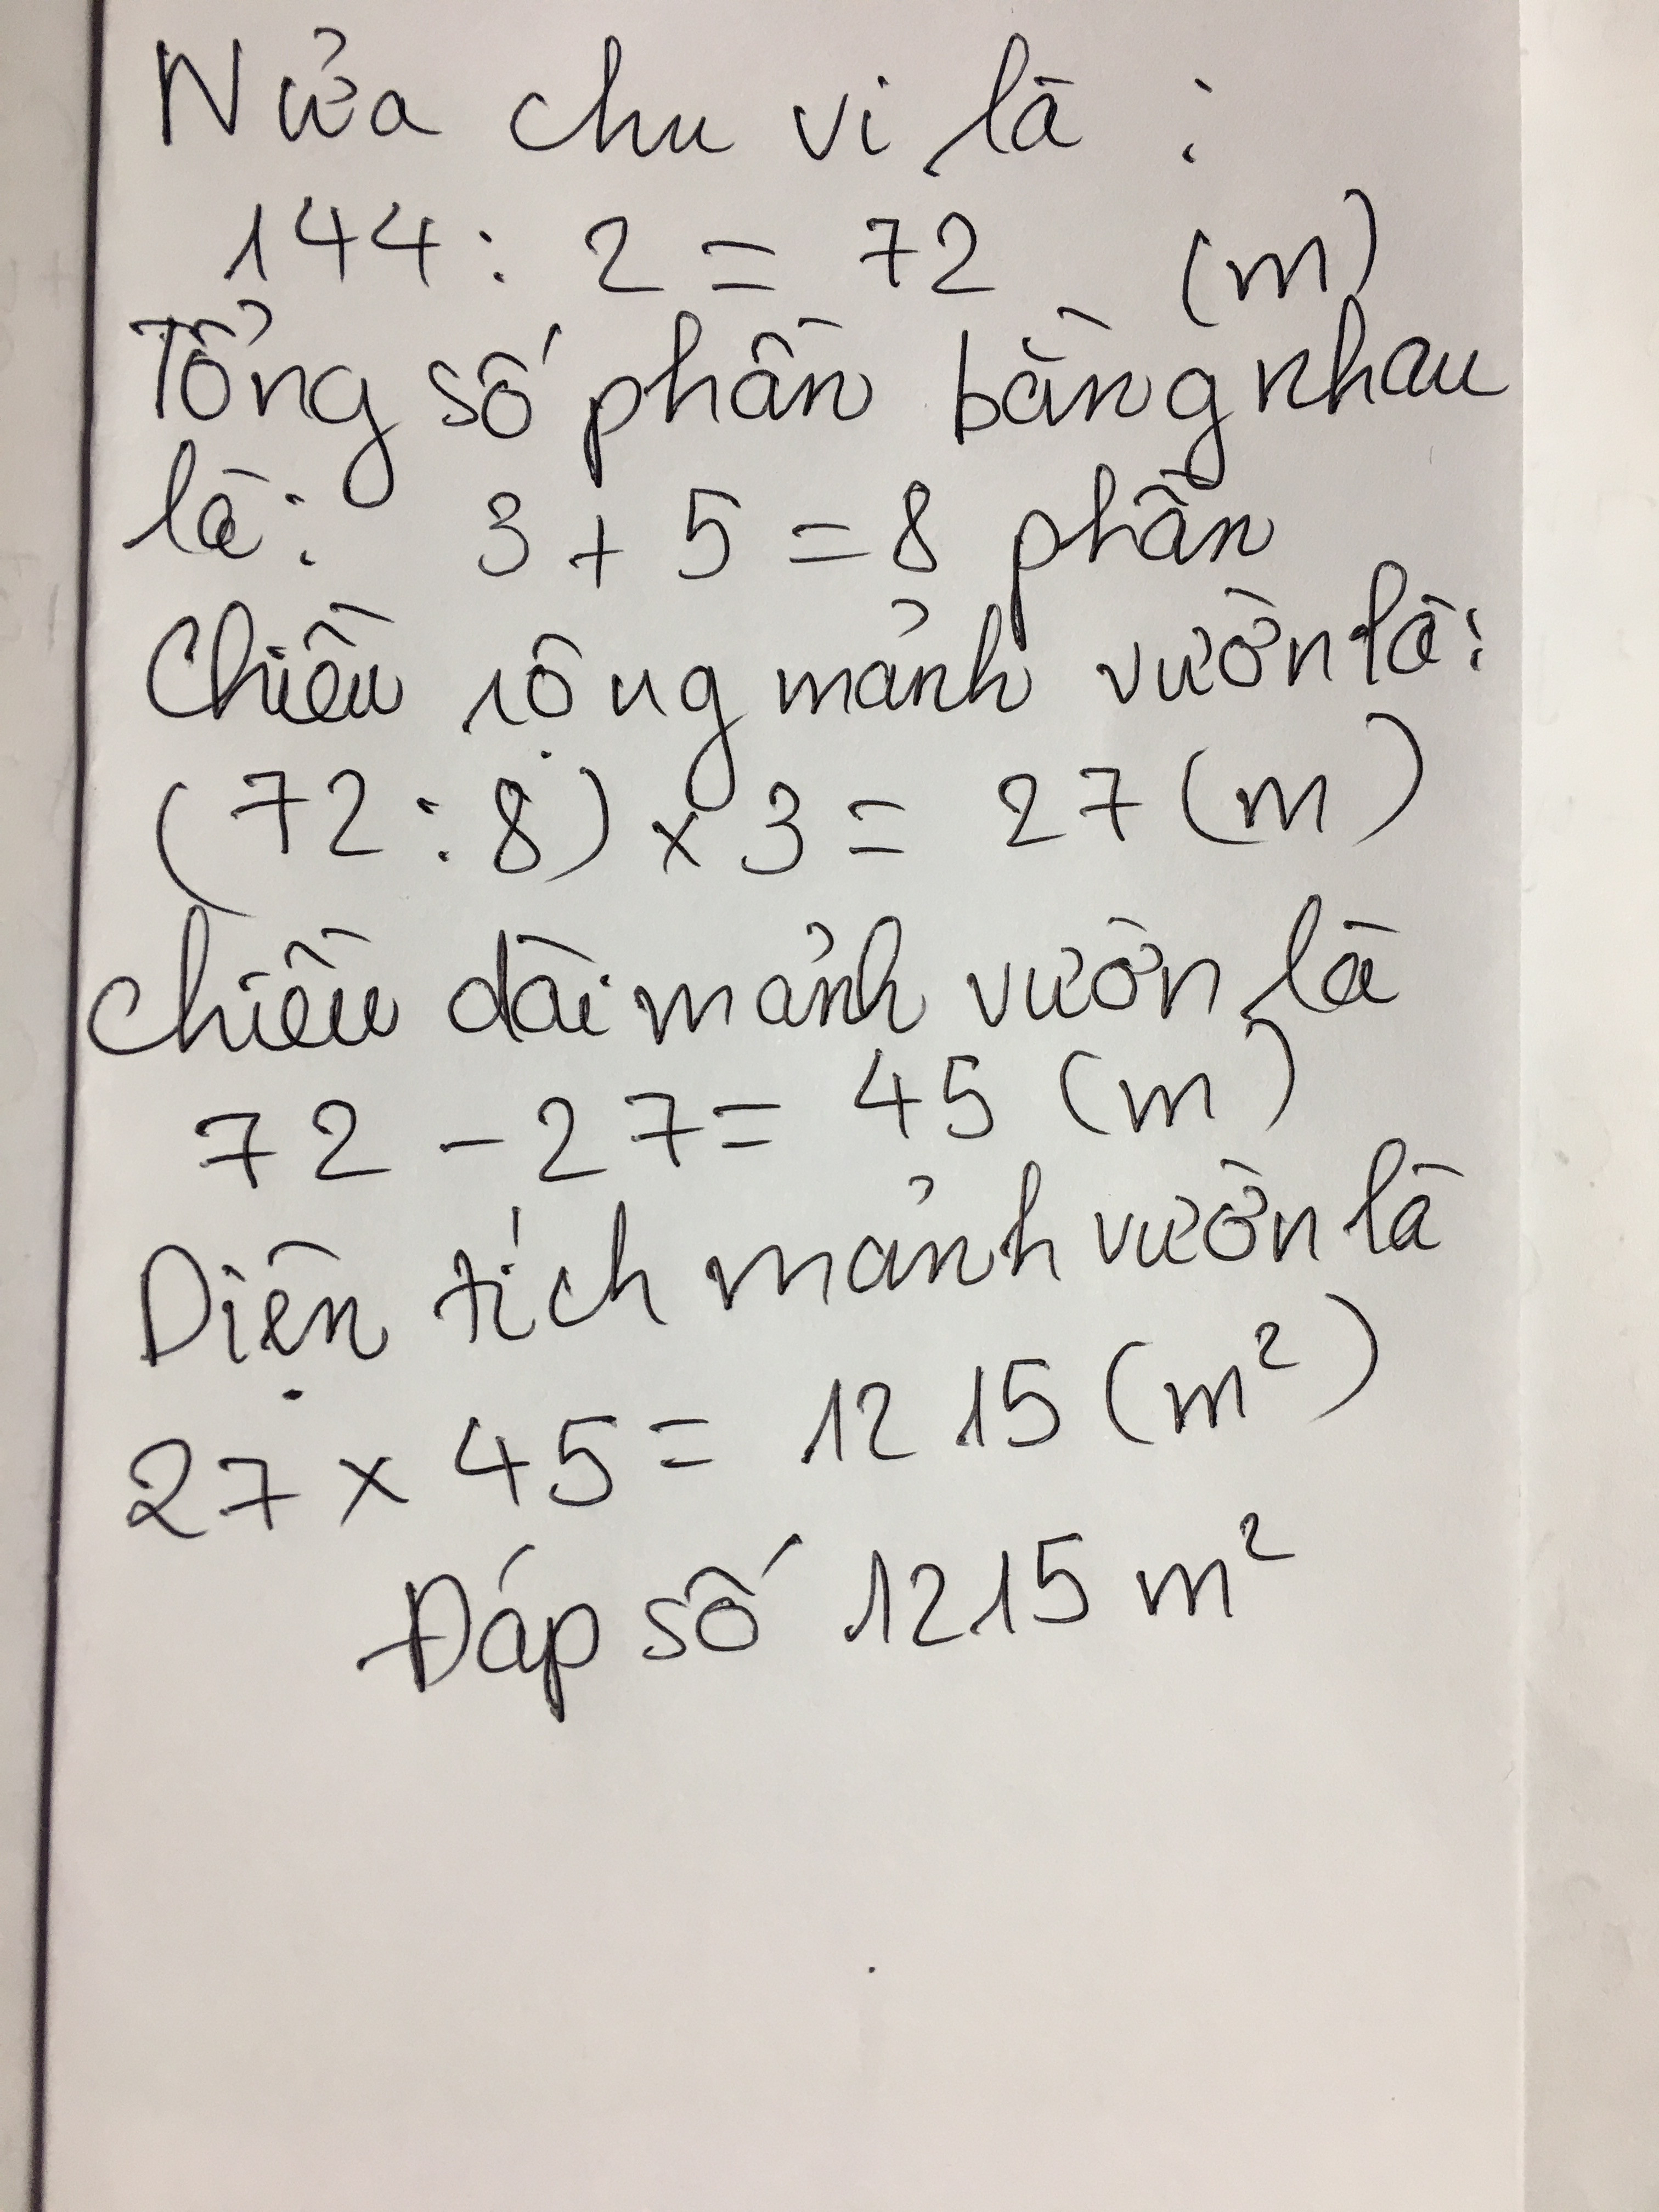 Nửa chu vi là :
144 : 2 = 72 (m)
Tổng số phần bằng nhau
là: 3 + 5 = 8 phần
Chiều rộng mảnh vườn là:
(72 : 8) x 3 = 27 (m)
Chiều dài mảnh vườn là
72 - 27 = 45 (m)
Diện tích mảnh vườn là
27 x 45 = 1215 (m²)
Đáp số 1215 m²